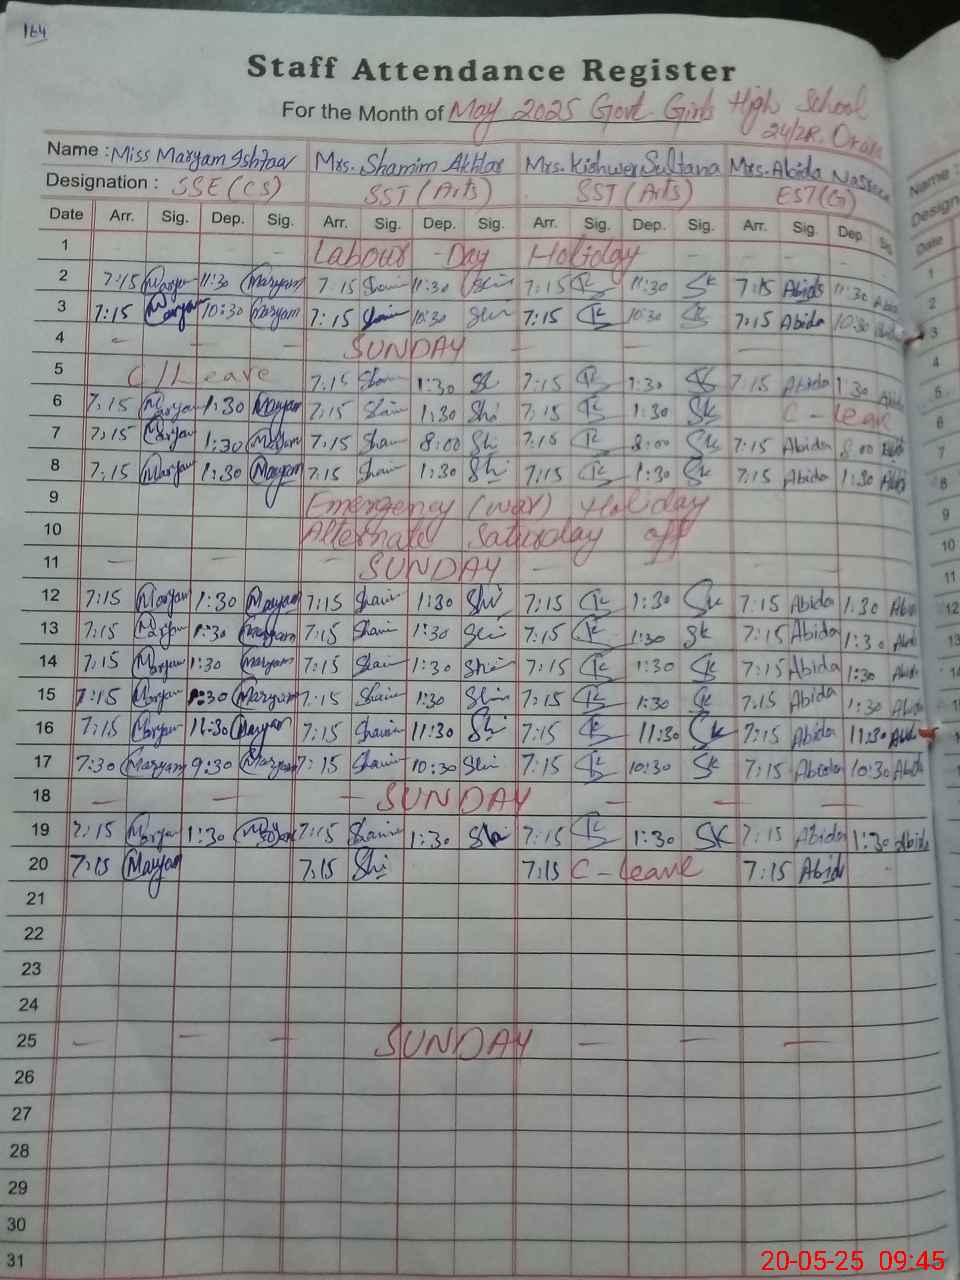 164
Staff Attendance Register
For the Month of May 2025 Govt. Girls High School
24/2R, Okara
Name : Miss Maryam Ishfaq Mrs. Shamim Akhtar Mrs. Kishwer Sultana Mrs. Abida Nasreen
Designation : SSE (CS) SST (Arts) SST (Arts) EST (G)
Date Arr. Sig. Dep. Sig. Arr. Sig. Dep. Sig. Arr. Sig. Dep. Sig. Arr. Sig. Dep. Sig.
1 Labour - Day Holiday
2 7:15 Maryam 11:30 Maryam 7:15 11:30 7:15 11:30 Sk 7:15 Abida 11:30 Abida
3 7:15 Maryam 10:30 Maryam 7:15 10:30 7:15 10:30 7:15 Abida 10:30 Abida
4 SUNDAY
5 C/Leave 7:15 1:30 7:15 1:30 7:15 Abida 1:30 Abida
6 7:15 Maryam 1:30 Maryam 7:15 1:30 7:15 1:30 Sk C - leave
7 7:15 Maryam 1:30 Maryam 7:15 8:00 7:15 8:00 Sk 7:15 Abida 8:00
8 7:15 Maryam 1:30 Maryam 7:15 1:30 7:15 1:30 Sk 7:15 Abida 1:30 Abida
9 Emergency (war) Holiday
10 Alternate Saturday off
11 SUNDAY
12 7:15 Maryam 1:30 Maryam 7:15 1:30 7:15 1:30 Sk 7:15 Abida 1:30 Abida
13 7:15 Maryam 1:30 Maryam 7:15 1:30 7:15 1:30 Sk 7:15 Abida 1:30 Abida
14 7:15 Maryam 1:30 Maryam 7:15 1:30 7:15 1:30 Sk 7:15 Abida 1:30 Abida
15 7:15 Maryam 1:30 Maryam 7:15 1:30 7:15 1:30 Sk 7:15 Abida 1:30 Abida
16 7:15 Maryam 11:30 Maryam 7:15 11:30 7:15 11:30 Sk 7:15 Abida 11:30 Abida
17 7:30 Maryam 9:30 Maryam 7:15 10:30 7:15 10:30 Sk 7:15 Abida 10:30 Abida
18 SUNDAY
19 7:15 Maryam 1:30 Maryam 7:15 1:30 7:15 1:30 SK 7:15 Abida 1:30 Abida
20 7:15 Maryam 7:15 Shi 7:15 C - leave 7:15 Abida
21
22
23
24
25 SUNDAY
26
27
28
29
30
31
20-05-25 09:45